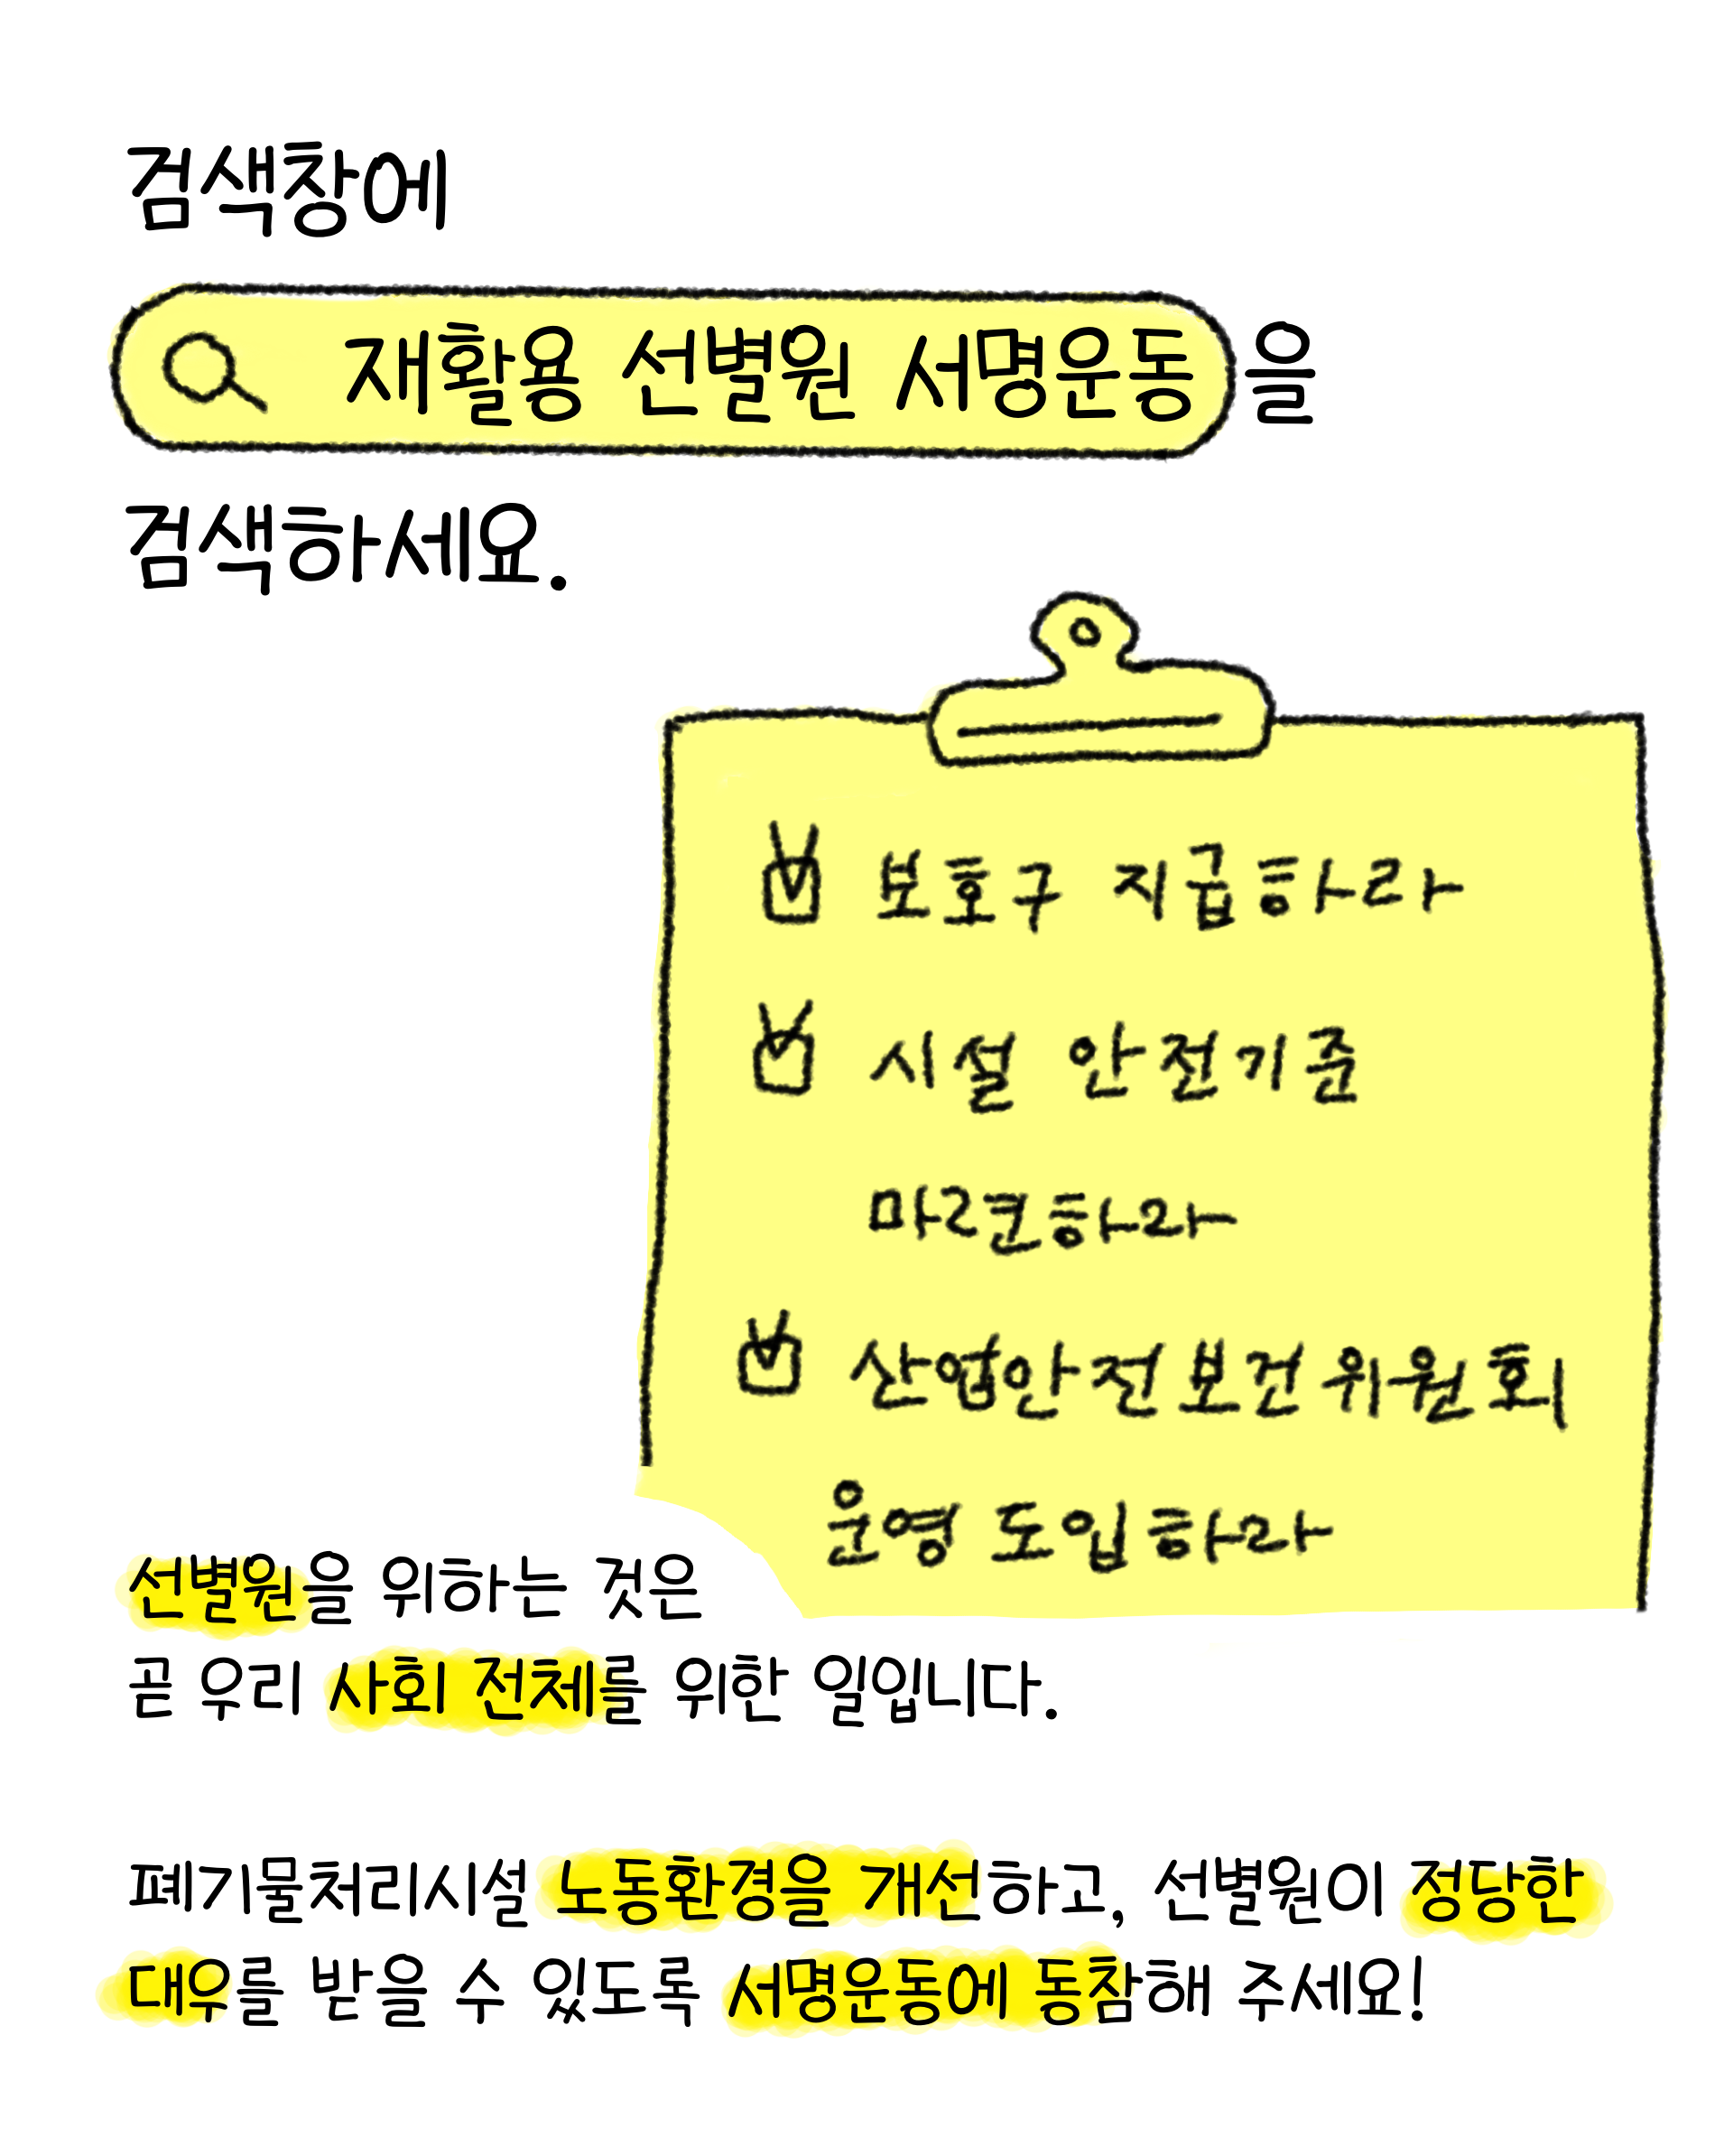 검색창에
재활용 선별원 서명운동을
검색하세요.
보호구 지급하라
시설 안전기준
마련하라
산업안전보건위원회
운영 도입하라
선별원을 위하는 것은
곧 우리 사회 전체를 위한 일입니다.
폐기물처리시설 노동환경을 개선하고, 선별원이 정당한
대우를 받을 수 있도록 서명운동에 동참해 주세요!